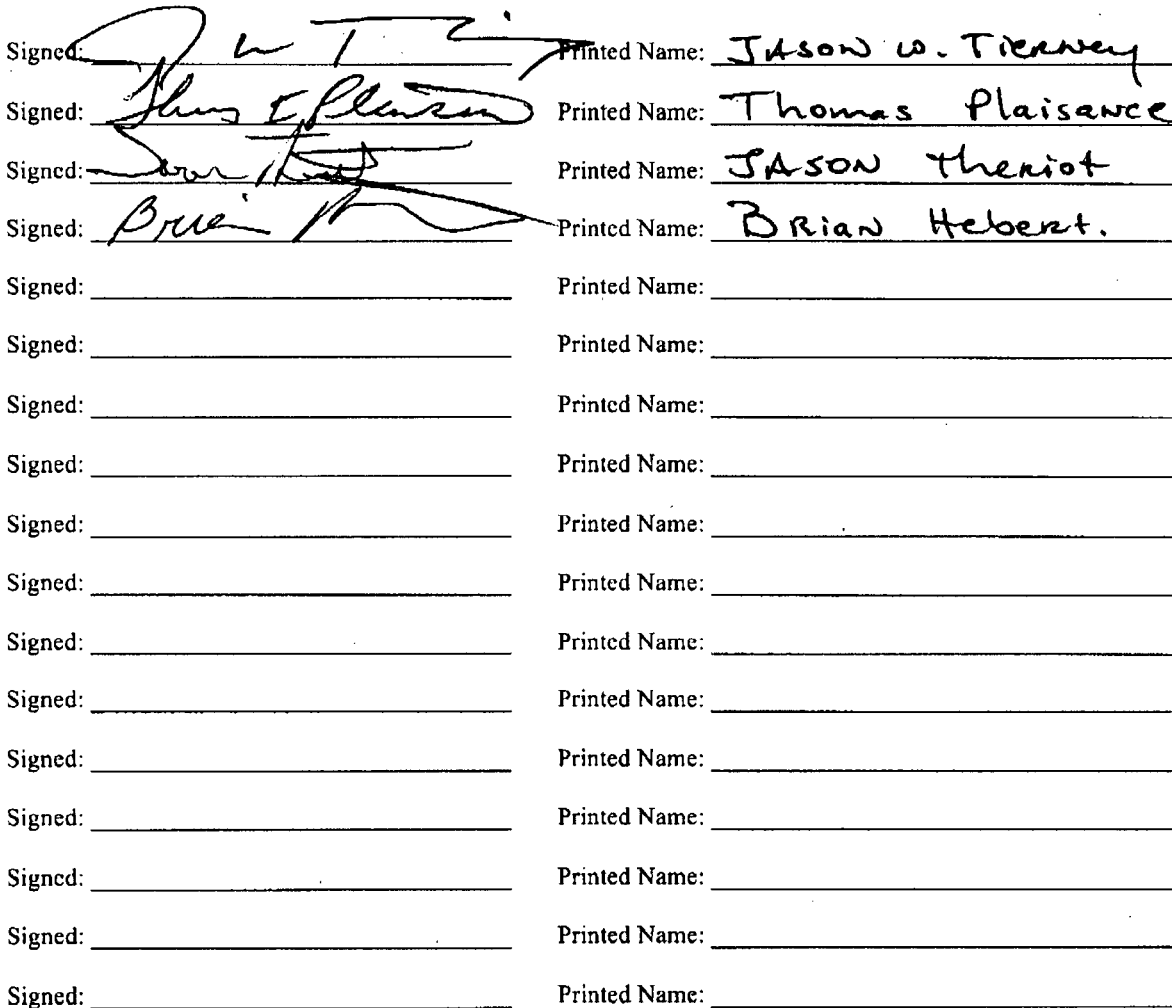 Signed: Printed Name: JASON W. Tierney
Signed: Thomas E Plaisance Printed Name: Thomas Plaisance
Signed: Jason Printed Name: JASON Theriot
Signed: Brian Printed Name: BRiaN Hebert.
Signed: Printed Name:
Signed: Printed Name:
Signed: Printed Name:
Signed: Printed Name:
Signed: Printed Name:
Signed: Printed Name:
Signed: Printed Name:
Signed: Printed Name:
Signed: Printed Name:
Signed: Printed Name:
Signed: Printed Name:
Signed: Printed Name:
Signed: Printed Name: